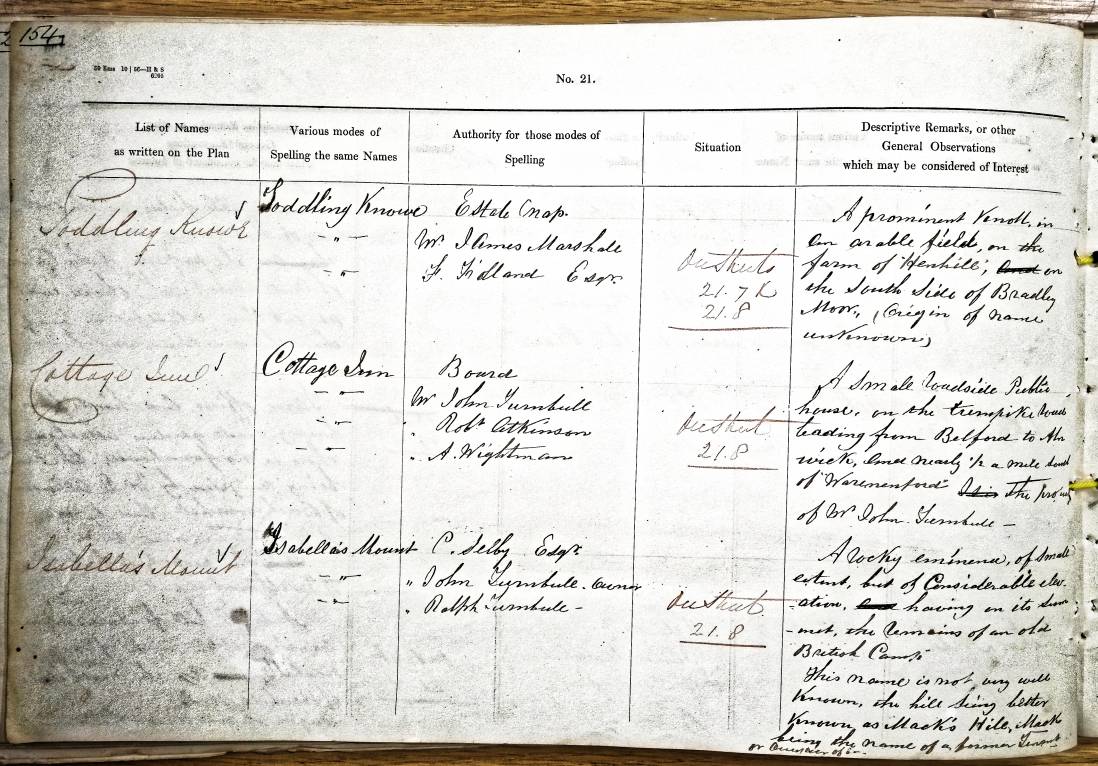 154
No. 21.
List of Names
as written on the Plan
Various modes of
Spelling the same Names
Authority for those modes of
Spelling
Situation
Descriptive Remarks, or other
General Observations
which may be considered of Interest
Toddling Knowe
Toddling Knowe
Estate Map.
Mr James Marshall
F. Fidland Esqr.
On Sheets
21.7 &
21.8
A prominent Knoll, in
an arable field, on the
farm of 'Henhill', and on
the South Side of Bradley
Moor, (Origin of name
unknown)
Cottage Inn
Cottage Inn
Board
Mr John Turnbull
" Robt Atkinson
" A. Wightman
On Sheet
21.8
A Small roadside Public
house, on the turnpike road
leading from Belford to Aln
wick, and nearly ½ a mile South
of Warenford Is in the property
of Mr John Turnbull —
Isabella's Mount
Isabella's Mount
C. Selby Esqr.
" John Turnbull - owner
" Ralph Turnbull -
On Sheet
21.8
A rocky eminence, of Small
extent, but of Considerable elev-
-ation, and having on its Sum
-mit, the remains of an old
British Camp.
This name is not very well
Known, the hill being better
Known as Mack's Hill, Mack
being the name of a former Tenant
or Occupier of it -